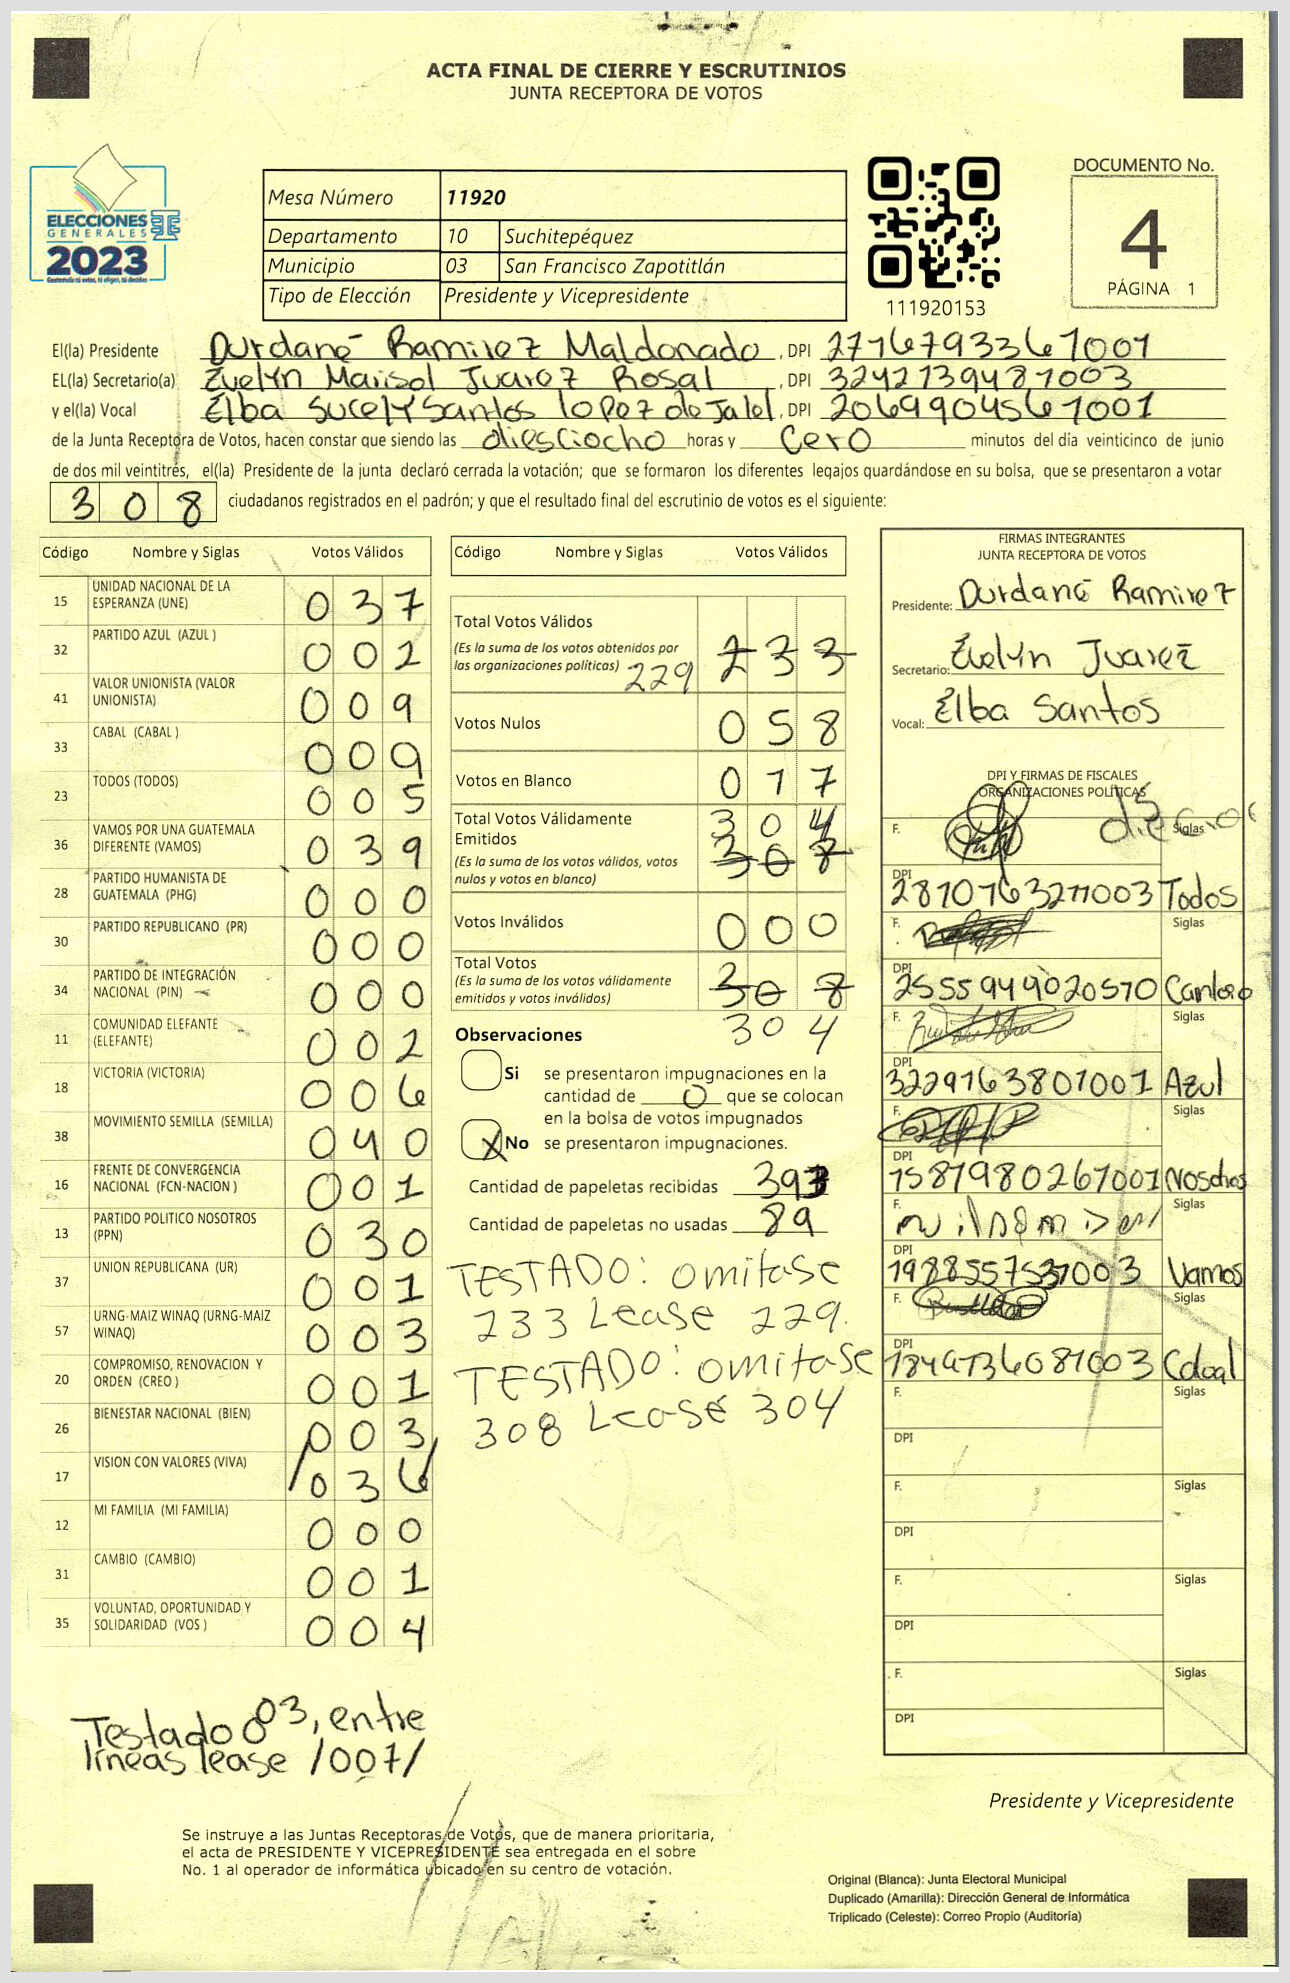 ACTA FINAL DE CIERRE Y ESCRUTINIOS
JUNTA RECEPTORA DE VOTOS
ELECCIONES
GENERALES
2023
Guatemala tú votas, tú eliges, tú decides
Mesa Número 11920
Departamento 10 Suchitepéquez
Municipio 03 San Francisco Zapotitlán
Tipo de Elección Presidente y Vicepresidente
111920153
DOCUMENTO No.
4
PÁGINA 1
El(la) Presidente Durdané Ramirez Maldonado, DPI 2716793361001
EL(la) Secretario(a) Evelyn Marisol Juarez Rosal, DPI 3242739481003
y el(la) Vocal Elba Sucely Santos lopez de Jalel, DPI 2069904561001
de la Junta Receptora de Votos, hacen constar que siendo las diesciocho horas y cero minutos del día veinticinco de junio
de dos mil veintitrés, el(la) Presidente de la junta declaró cerrada la votación; que se formaron los diferentes legajos quardándose en su bolsa, que se presentaron a votar
308 ciudadanos registrados en el padrón; y que el resultado final del escrutinio de votos es el siguiente:
Código Nombre y Siglas Votos Válidos
15 UNIDAD NACIONAL DE LA ESPERANZA (UNE) 037
32 PARTIDO AZUL (AZUL ) 002
41 VALOR UNIONISTA (VALOR UNIONISTA) 009
33 CABAL (CABAL ) 009
23 TODOS (TODOS) 005
36 VAMOS POR UNA GUATEMALA DIFERENTE (VAMOS) 039
28 PARTIDO HUMANISTA DE GUATEMALA (PHG) 000
30 PARTIDO REPUBLICANO (PR) 000
34 PARTIDO DE INTEGRACIÓN NACIONAL (PIN) 000
11 COMUNIDAD ELEFANTE (ELEFANTE) 002
18 VICTORIA (VICTORIA) 006
38 MOVIMIENTO SEMILLA (SEMILLA) 040
16 FRENTE DE CONVERGENCIA NACIONAL (FCN-NACION ) 001
13 PARTIDO POLITICO NOSOTROS (PPN) 030
37 UNION REPUBLICANA (UR) 001
57 URNG-MAIZ WINAQ (URNG-MAIZ WINAQ) 003
20 COMPROMISO, RENOVACION Y ORDEN (CREO ) 001
26 BIENESTAR NACIONAL (BIEN) 003
17 VISION CON VALORES (VIVA) 036
12 MI FAMILIA (MI FAMILIA) 000
31 CAMBIO (CAMBIO) 001
35 VOLUNTAD, OPORTUNIDAD Y SOLIDARIDAD (VOS ) 004
Testado 003, entre
líneas lease /007/
Código Nombre y Siglas Votos Válidos
Total Votos Válidos
(Es la suma de los votos obtenidos por
las organizaciones políticas) 229 233
Votos Nulos 058
Votos en Blanco 017
Total Votos Válidamente 304
Emitidos
(Es la suma de los votos válidos, votos 308
nulos y votos en blanco)
Votos Inválidos 000
Total Votos
(Es la suma de los votos válidamente 308
emitidos y votos inválidos)
304
Observaciones
Si se presentaron impugnaciones en la
cantidad de 0 que se colocan
en la bolsa de votos impugnados
X No se presentaron impugnaciones.
Cantidad de papeletas recibidas 393
Cantidad de papeletas no usadas 89
TESTADO: omitase
233 Lease 229.
TESTADO: omitase
308 Lease 304
FIRMAS INTEGRANTES
JUNTA RECEPTORA DE VOTOS
Presidente: Durdané Ramirez
Secretario: Evelyn Juarez
Vocal: Elba Santos
DPI Y FIRMAS DE FISCALES
ORGANIZACIONES POLÍTICAS
F. Siglas
DPI 2810763271003 Todos
F. Siglas
DPI 2555949020570
F. Siglas
DPI 3229163801001 Azul
F. Siglas
DPI 1581980261001
F. Siglas
DPI 1988557531003 Vamos
F. Siglas
DPI
F. Siglas
DPI
F. Siglas
DPI
F. Siglas
DPI
F. Siglas
DPI
Presidente y Vicepresidente
Se instruye a las Juntas Receptoras de Votos, que de manera prioritaria,
el acta de PRESIDENTE Y VICEPRESIDENTE sea entregada en el sobre
No. 1 al operador de informática ubicado en su centro de votación.
Original (Blanca): Junta Electoral Municipal
Duplicado (Amarilla): Dirección General de Informática
Triplicado (Celeste): Correo Propio (Auditoría)